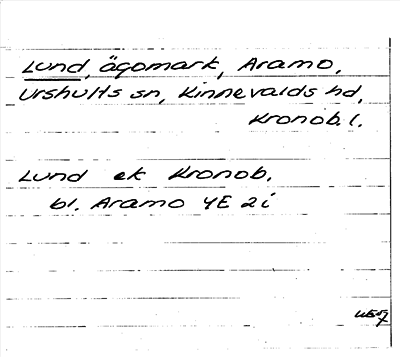 Lund, ägomark, Aramo,
Urshults sn, Kinnevalds hd,
Kronob. l.
Lund ek Kronob.
bl. Aramo 4E 2i